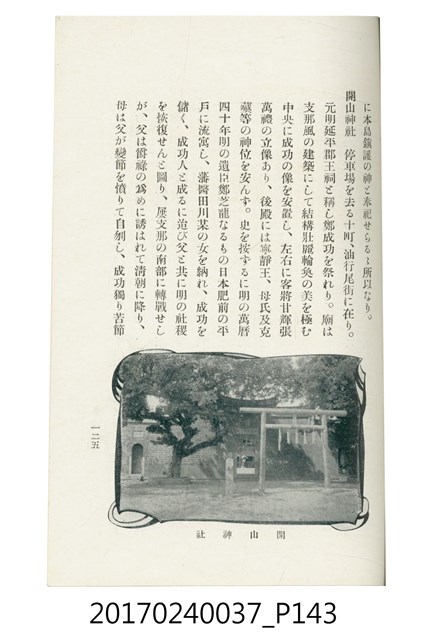 に本島鎭護の神と奉祀せらるゝ所以なり。
開山神社　停車場を去る十町、油行尾街に在り。
元明延平郡王祠と稱し鄭成功を祭れり。廟は
支那風の建築にして結構壯麗輪奐の美を極む
中央に成功の像を安置し、左右に客將甘輝張
萬禮の立像あり、後殿には寧靜王、母氏及克
𡒉等の神位を安んず。史を按するに明の萬曆
四十年明の遺臣鄭芝龍なるもの日本肥前の平
戶に流寓し、藩醫田川某の女を納れ、成功を
儲く、成功人と成るに迨び父と共に明の社稷
を恢復せんと圖り、屡支那の南部に轉戰せし
が、父は爵祿の爲めに誘はれて淸朝に降り、
母は父が變節を憤りて自刎し、成功獨り苦節
開山神社
一二五
20170240037_P143